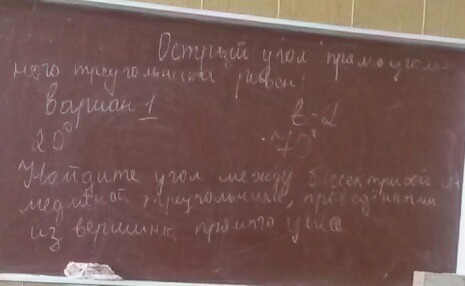 Острый угол прямоуголь-
ного треугольника равен:
Вариан 1
в-2
20°
70°
Найдите угол между биссектрисой и
медианой треугольника, проведёнными
из вершины прямого угла